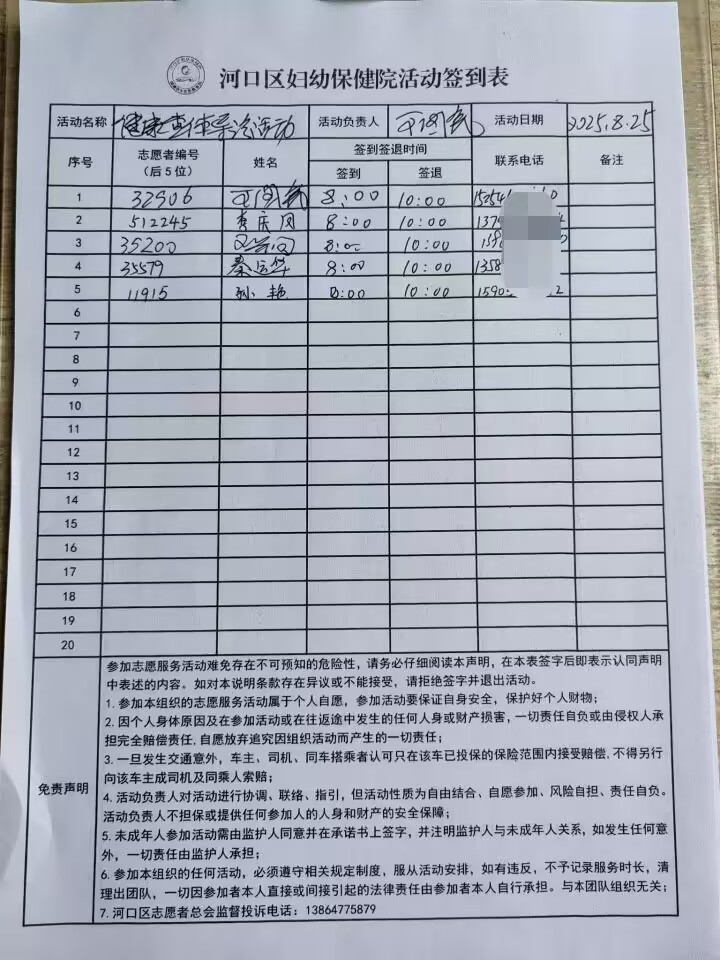 河口区妇幼保健院活动签到表
活动名称 健康 活动 活动负责人 活动日期 2025.8.25
序号 志愿者编号（后5位） 姓名 签到签退时间 联系电话 备注
签到 签退
1 32906 8:00 10:00
2 512245 李庆凤 8:00 10:00
3 35200 8:00 10:00
4 35579 秦运华 8:00 10:00
5 11915 孙艳 8:00 10:00
6
7
8
9
10
11
12
13
14
15
16
17
18
19
20
免责声明
参加志愿服务活动难免存在不可预知的危险性，请务必仔细阅读本声明，在本表签字后即表示认同声明
中表述的内容。如对本说明条款存在异议或不能接受，请拒绝签字并退出活动。
1. 参加本组织的志愿服务活动属于个人自愿，参加活动要保证自身安全，保护好个人财物；
2. 因个人身体原因及在参加活动或在往返途中发生的任何人身或财产损害，一切责任自负或由侵权人承
担完全赔偿责任，自愿放弃追究因组织活动而产生的一切责任；
3. 一旦发生交通意外，车主、司机、同车搭乘者认可只在该车已投保的保险范围内接受赔偿，不得另行
向该车主成司机及同乘人索赔；
4. 活动负责人对活动进行协调、联络、指引，但活动性质为自由结合、自愿参加、风险自担、责任自负。
活动负责人不担保或提供任何参加人的人身和财产的安全保障；
5. 未成年人参加活动需由监护人同意并在承诺书上签字，并注明监护人与未成年人关系，如发生任何意
外，一切责任由监护人承担；
6. 参加本组织的任何活动，必须遵守相关规定制度，服从活动安排，如有违反，不予记录服务时长，清
理出团队，一切因参加者本人直接或间接引起的法律责任由参加者本人自行承担。与本团队组织无关；
7. 河口区志愿者总会监督投诉电话：13864775879